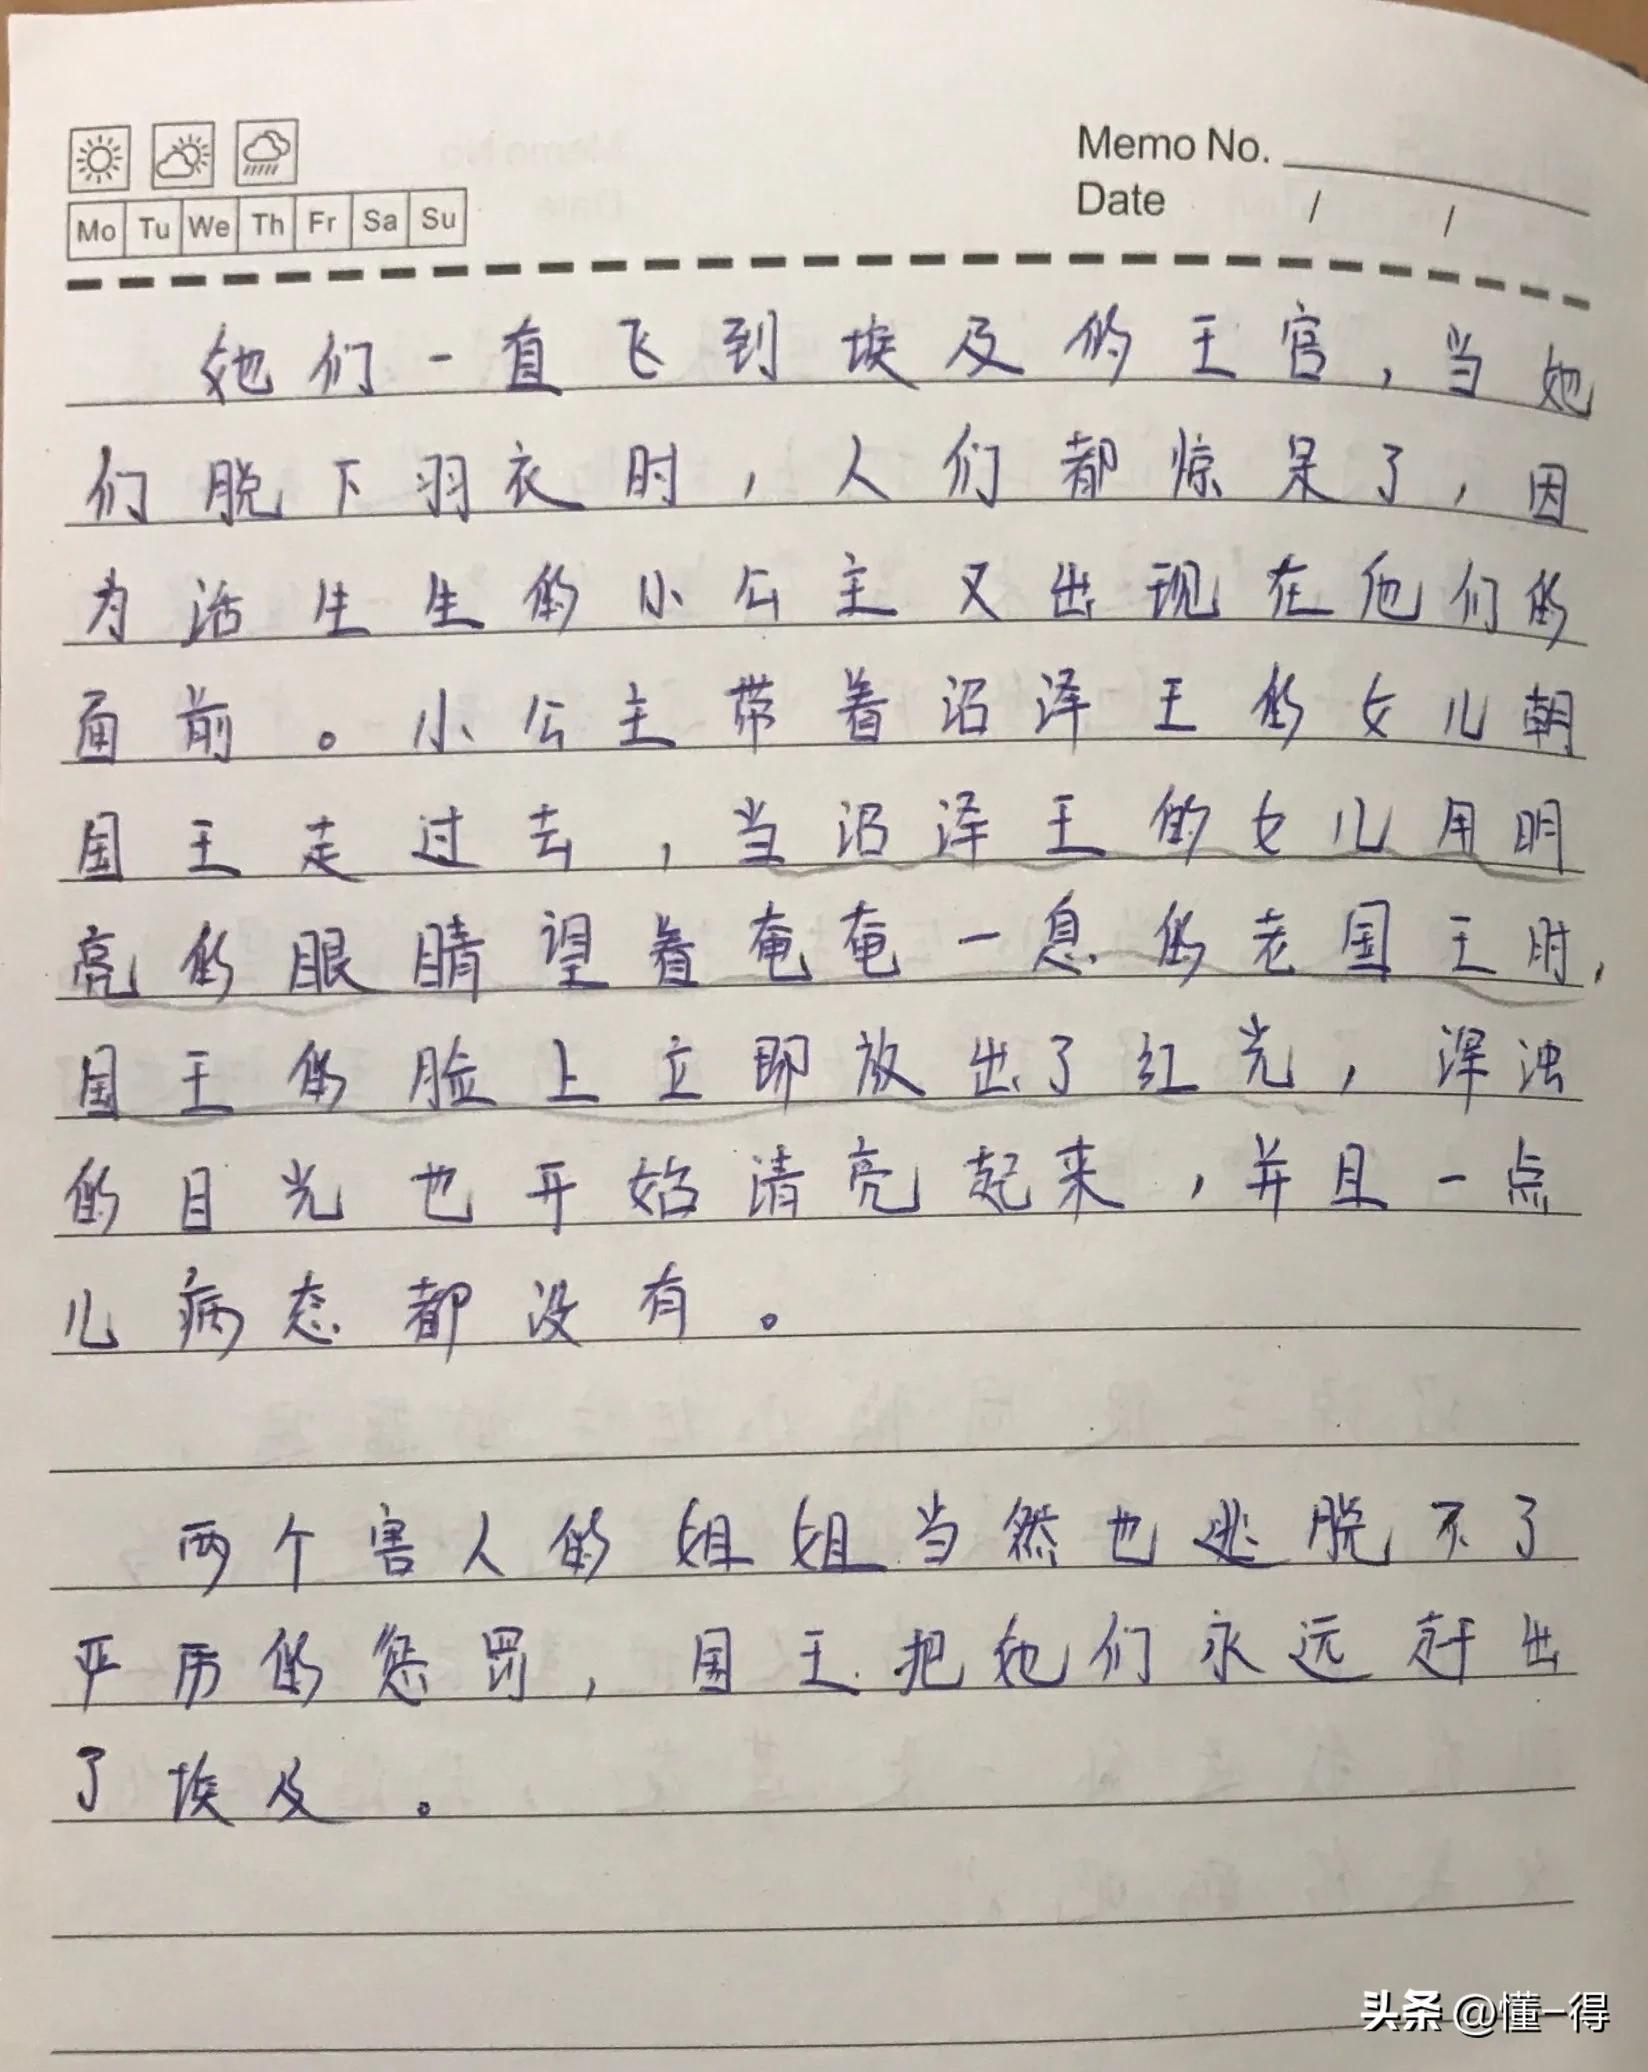 Memo No.
Mo Tu We Th Fr Sa Su
Date / /
她们一直飞到埃及的王宫,当她
们脱下羽衣时,人们都惊呆了,因
为活生生的小公主又出现在他们的
面前。小公主带着沼泽王的女儿朝
国王走过去,当沼泽王的女儿用明
亮的眼睛望着奄奄一息的老国王时,
国王的脸上立即放出了红光,浑浊
的目光也开始清亮起来,并且一点
儿病态都没有。
两个害人的姐姐当然也逃脱不了
严厉的惩罚,国王把她们永远赶出
了埃及。
头条 @懂一得